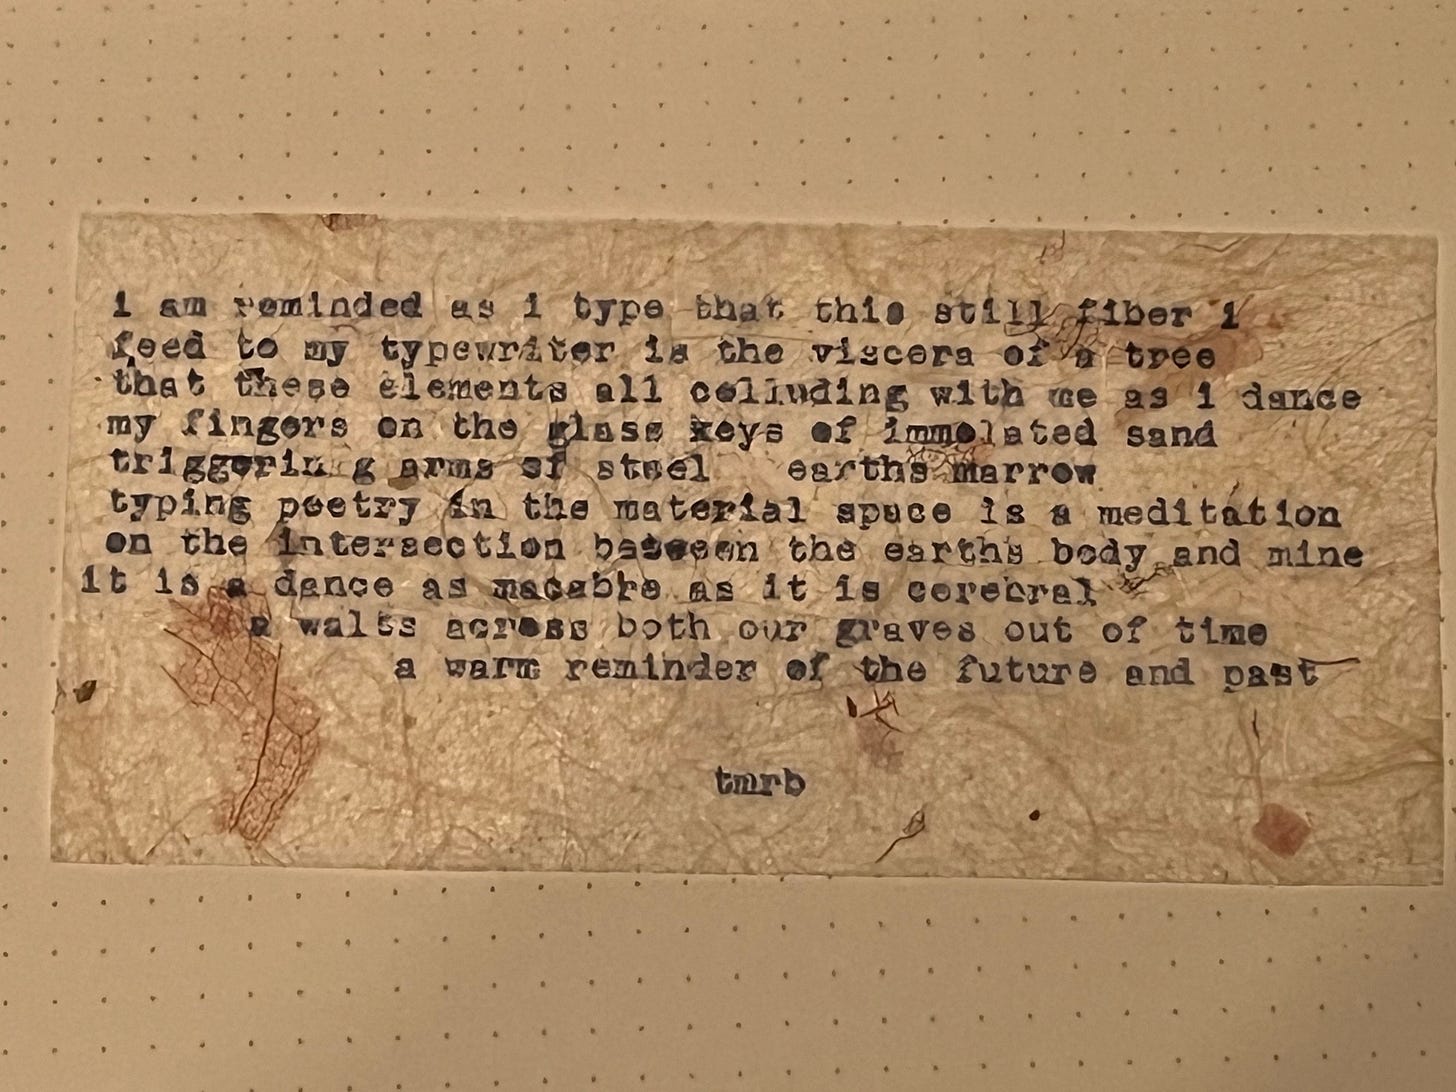 i am reminded as i type that this still fiber i
feed to my typewriter is the viscera of a tree
that these elements all colluding with me as i dance
my fingers on the glass keys of immolated sand
triggerin g arms of steel   earths marrow
typing poetry in the material space is a meditation
on the intersection between the earths body and mine
it is a dance as macabre as it is cerebral
a walts across both our graves out of time
a warm reminder of the future and past
tmrb